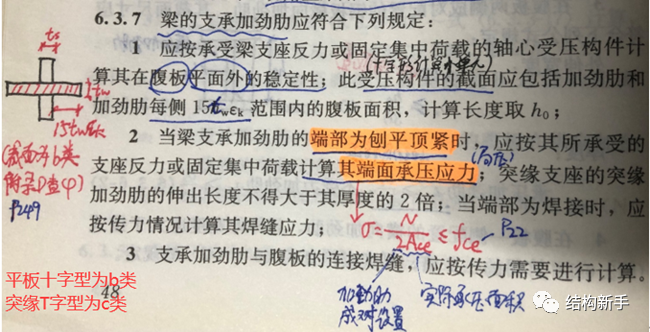 6.3.7 梁的支承加劲肋应符合下列规定：
1 应按承受梁支座反力或固定集中荷载的轴心受压构件计
算其在腹板平面外的稳定性；此受压构件的截面应包括加劲肋和
加劲肋每侧 15twεk 范围内的腹板面积，计算长度取 h0；
2 当梁支承加劲肋的端部为刨平顶紧时，应按其所承受的
支座反力或固定集中荷载计算其端面承压应力；突缘支座的突缘
加劲肋的伸出长度不得大于其厚度的 2 倍；当端部为焊接时，应
按传力情况计算其焊缝应力；
3 支承加劲肋与腹板的连接焊缝，应按传力需要进行计算。
48
ts
tw
15twεk
(截面为b类
附录D查φ)
P249
(局压)
σ=N/2Ace≤fce
P22
加劲肋
成对设置
实际承压面积
平板十字型为b类
突缘T字型为c类
结构新手